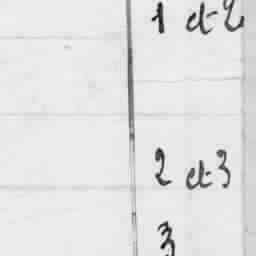 1 et 2
2 et 3
3